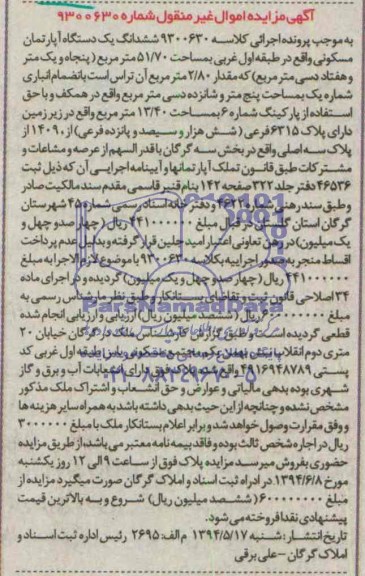 آگهی مزایده اموال غیر منقول شماره ۹۳۰۰۶۳۰
به موجب پرونده اجرائی کلاسه ۹۳۰۰۶۳۰ ششدانگ یک دستگاه آپارتمان
مسکونی واقع در طبقه اول غربی بمساحت ۵۱/۷۰ متر مربع (پنجاه و یک متر
و هفتاد دسی متر مربع) که مقدار ۲/۸۰ متر مربع آن تراس است بانضمام انباری
شماره یک بمساحت پنج متر و شانزده دسی متر مربع واقع در همکف و با حق
استفاده از پارکینگ شماره ۶ بمساحت ۱۳/۴۰ متر مربع واقع در زیر زمین
دارای پلاک ۶۳۱۵ فرعی (شش هزار و سیصد و پانزده فرعی) از ۱۴۰۹۰ از
پلاک سه اصلی واقع در بخش سه گرگان با قدر السهم از عرصه و مشاعات و
مشترکات طبق قانون تملک آپارتمانها و آیینامه اجرایی آن که ذیل ثبت
۴۶۵۳۶ دفتر جلد ۳۲۲ صفحه ۱۴۲ بنام قنبر قاسمی مقدم سند مالکیت صادر
و طبق سند رهنی شماره دفتر خانه اسناد رسمی شماره ۴۵ شهرستان
گرگان استان گلستان در قبال مبلغ ۴۴۱۰۰۰۰۰۰ ریال (چهار صدو چهل و
یک میلیون) در رهن تعاونی اعتبار امید جلین قرار گرفته و بدلیل عدم پرداخت
اقساط منجر به صدور اجراییه بکلاسه ۹۳۰۰۶۳۰ با موضوع لازم الاجرا به مبلغ
۴۴۱۰۰۰۰۰۰ ریال (چهار صدو چهل و یک میلیون) گردیده و در اجرای ماده
۳۴ اصلاحی قانون ثبت و تقاضای بستانکار و طبق نظر کارشناس رسمی به
مبلغ ۶۰۰۰۰۰۰۰۰ ریال (ششصد میلیون ریال) ارزیابی و ارزیابی انجام شده
قطعی گردیده است و طبق گزارش کارشناس ملک در گرگان خیابان ۲۰
متری دوم انقلاب مجتمع مسکونی طبقه اول غربی کد
پستی ۴۹۱۶۹۴۸۷۸۹ واقع شده پلاک فوق دارای انشعابات آب و برق و گاز
شهری بوده بدهی مالیاتی و عوارض و حق انشعاب و اشتراک ملک مذکور
مشخص نشده و چنانچه از این حیث بدهی داشته باشد به همراه سایر هزینه ها
و وفق مقررات وصول خواهد شد و برابر اعلام بستانکار ملک با مبلغ ۳۰۰۰۰۰۰
ریال در اجاره شخص ثالث بوده و فاقد بیمه نامه معتبر می باشد، از طریق مزایده
حضوری بفروش میرسد مزایده پلاک فوق از ساعت ۹ الی ۱۲ روز یکشنبه
مورخ ۱۳۹۴/۶/۸ در اداره ثبت اسناد و املاک گرگان صورت میگیرد مزایده از
مبلغ ۶۰۰۰۰۰۰۰۰ (ششصد میلیون ریال) شروع و به بالاترین قیمت
پیشنهادی نقدا فروخته می شود.
تاریخ انتشار: شنبه ۱۳۹۴/۵/۱۷ م الف: ۲۶۹۵ رئیس اداره ثبت اسناد و
املاک گرگان - علی برقی
ParsNamadData
۰۲۱-۸۸۳۴۹۶۷۰-۵